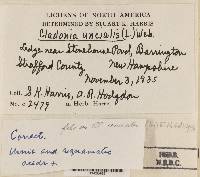 LICHENS OF NORTH AMERICA
DETERMINED BY STUART K. HARRIS
Cladonia uncialis (L.) Web.
Ledge near Stonehouse Pond, Barrington
Strafford County, New Hampshire
November 3, 1935
Coll. S. K. Harris, A. R. Hodgdon
No. 2479 in Herb. Harris
Correct.
Usnic and squamatic
acids +
HERB.